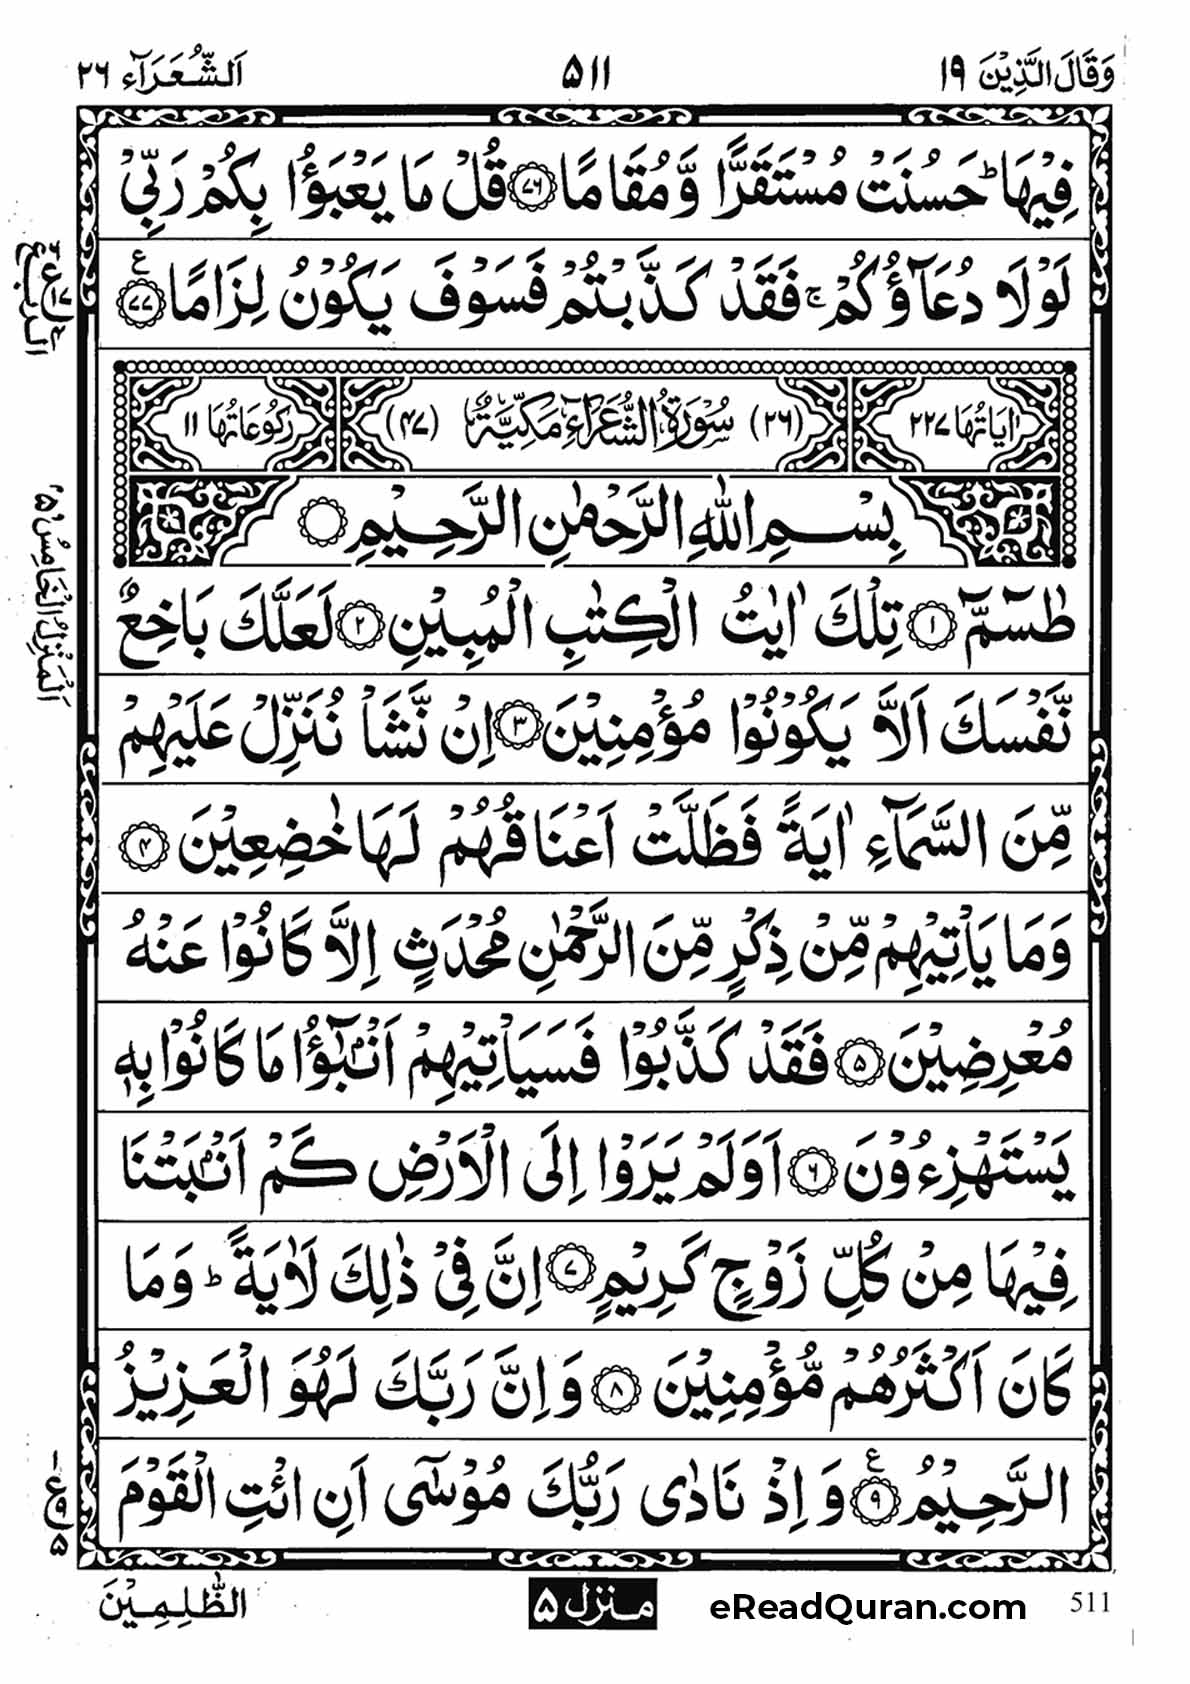 وَقَالَ الَّذِيْنَ ١٩
٥١١
اَلشُّعَرَآء ٢٦
فِيْهَا ؕ حَسُنَتْ مُسْتَقَرًّا وَّمُقَامًا ﴿۷۶﴾ قُلْ مَا يَعْبَؤُا بِكُمْ رَبِّيْ
لَوْلَا دُعَآؤُكُمْ ۚ فَقَدْ كَذَّبْتُمْ فَسَوْفَ يَكُوْنُ لِزَامًا ﴿۷۷﴾ ع
اٰيَاتُهَا ٢٢٧
(٢٦) سُوْرَةُ الشُّعَرَآءِ مَكِّيَّةٌ (٤٧)
رُكُوْعَاتُهَا ١١
بِسْمِ اللّٰهِ الرَّحْمٰنِ الرَّحِيْمِ
طٰسٓمّٓ ﴿۱﴾ تِلْكَ اٰيٰتُ الْكِتٰبِ الْمُبِيْنِ ﴿۲﴾ لَعَلَّكَ بَاخِعٌ
نَّفْسَكَ اَلَّا يَكُوْنُوْا مُؤْمِنِيْنَ ﴿۳﴾ اِنْ نَّشَاْ نُنَزِّلْ عَلَيْهِمْ
مِّنَ السَّمَآءِ اٰيَةً فَظَلَّتْ اَعْنَاقُهُمْ لَهَا خٰضِعِيْنَ ﴿۴﴾
وَمَا يَاْتِيْهِمْ مِّنْ ذِكْرٍ مِّنَ الرَّحْمٰنِ مُحْدَثٍ اِلَّا كَانُوْا عَنْهُ
مُعْرِضِيْنَ ﴿۵﴾ فَقَدْ كَذَّبُوْا فَسَيَاْتِيْهِمْ اَنْۢبٰٓؤُا مَا كَانُوْا بِهٖ
يَسْتَهْزِءُوْنَ ﴿۶﴾ اَوَلَمْ يَرَوْا اِلَى الْاَرْضِ كَمْ اَنْۢبَتْنَا
فِيْهَا مِنْ كُلِّ زَوْجٍ كَرِيْمٍ ﴿۷﴾ اِنَّ فِيْ ذٰلِكَ لَاٰيَةً ؕ وَمَا
كَانَ اَكْثَرُهُمْ مُّؤْمِنِيْنَ ﴿۸﴾ وَاِنَّ رَبَّكَ لَهُوَ الْعَزِيْزُ
الرَّحِيْمُ ﴿۹﴾ ع وَاِذْ نَادٰى رَبُّكَ مُوْسٰٓى اَنِ ائْتِ الْقَوْمَ
اَلْمَنْزِلُ الْخَامِسُ ﴿۵﴾
الظّٰلِمِيْنَ
منزل ۵
eReadQuran.com
511